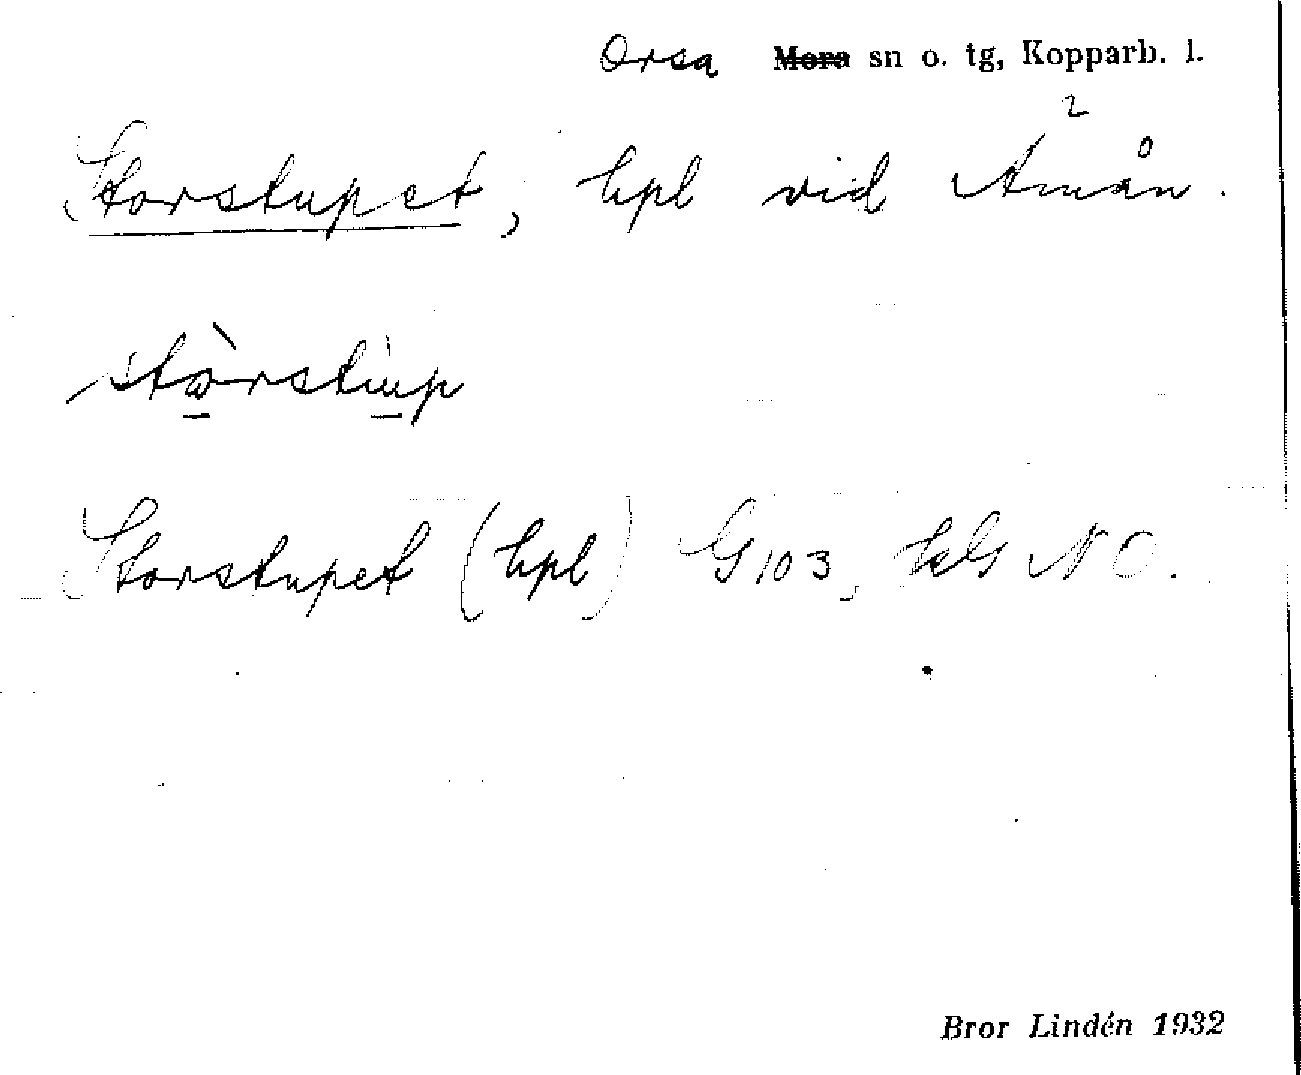 Orsa Mora sn o. tg, Kopparb. l.
Storstupet, hpl vid Ämån.
stòrstup
Storstupet (hpl) G 103, kbl NO.
Bror Lindén 1932